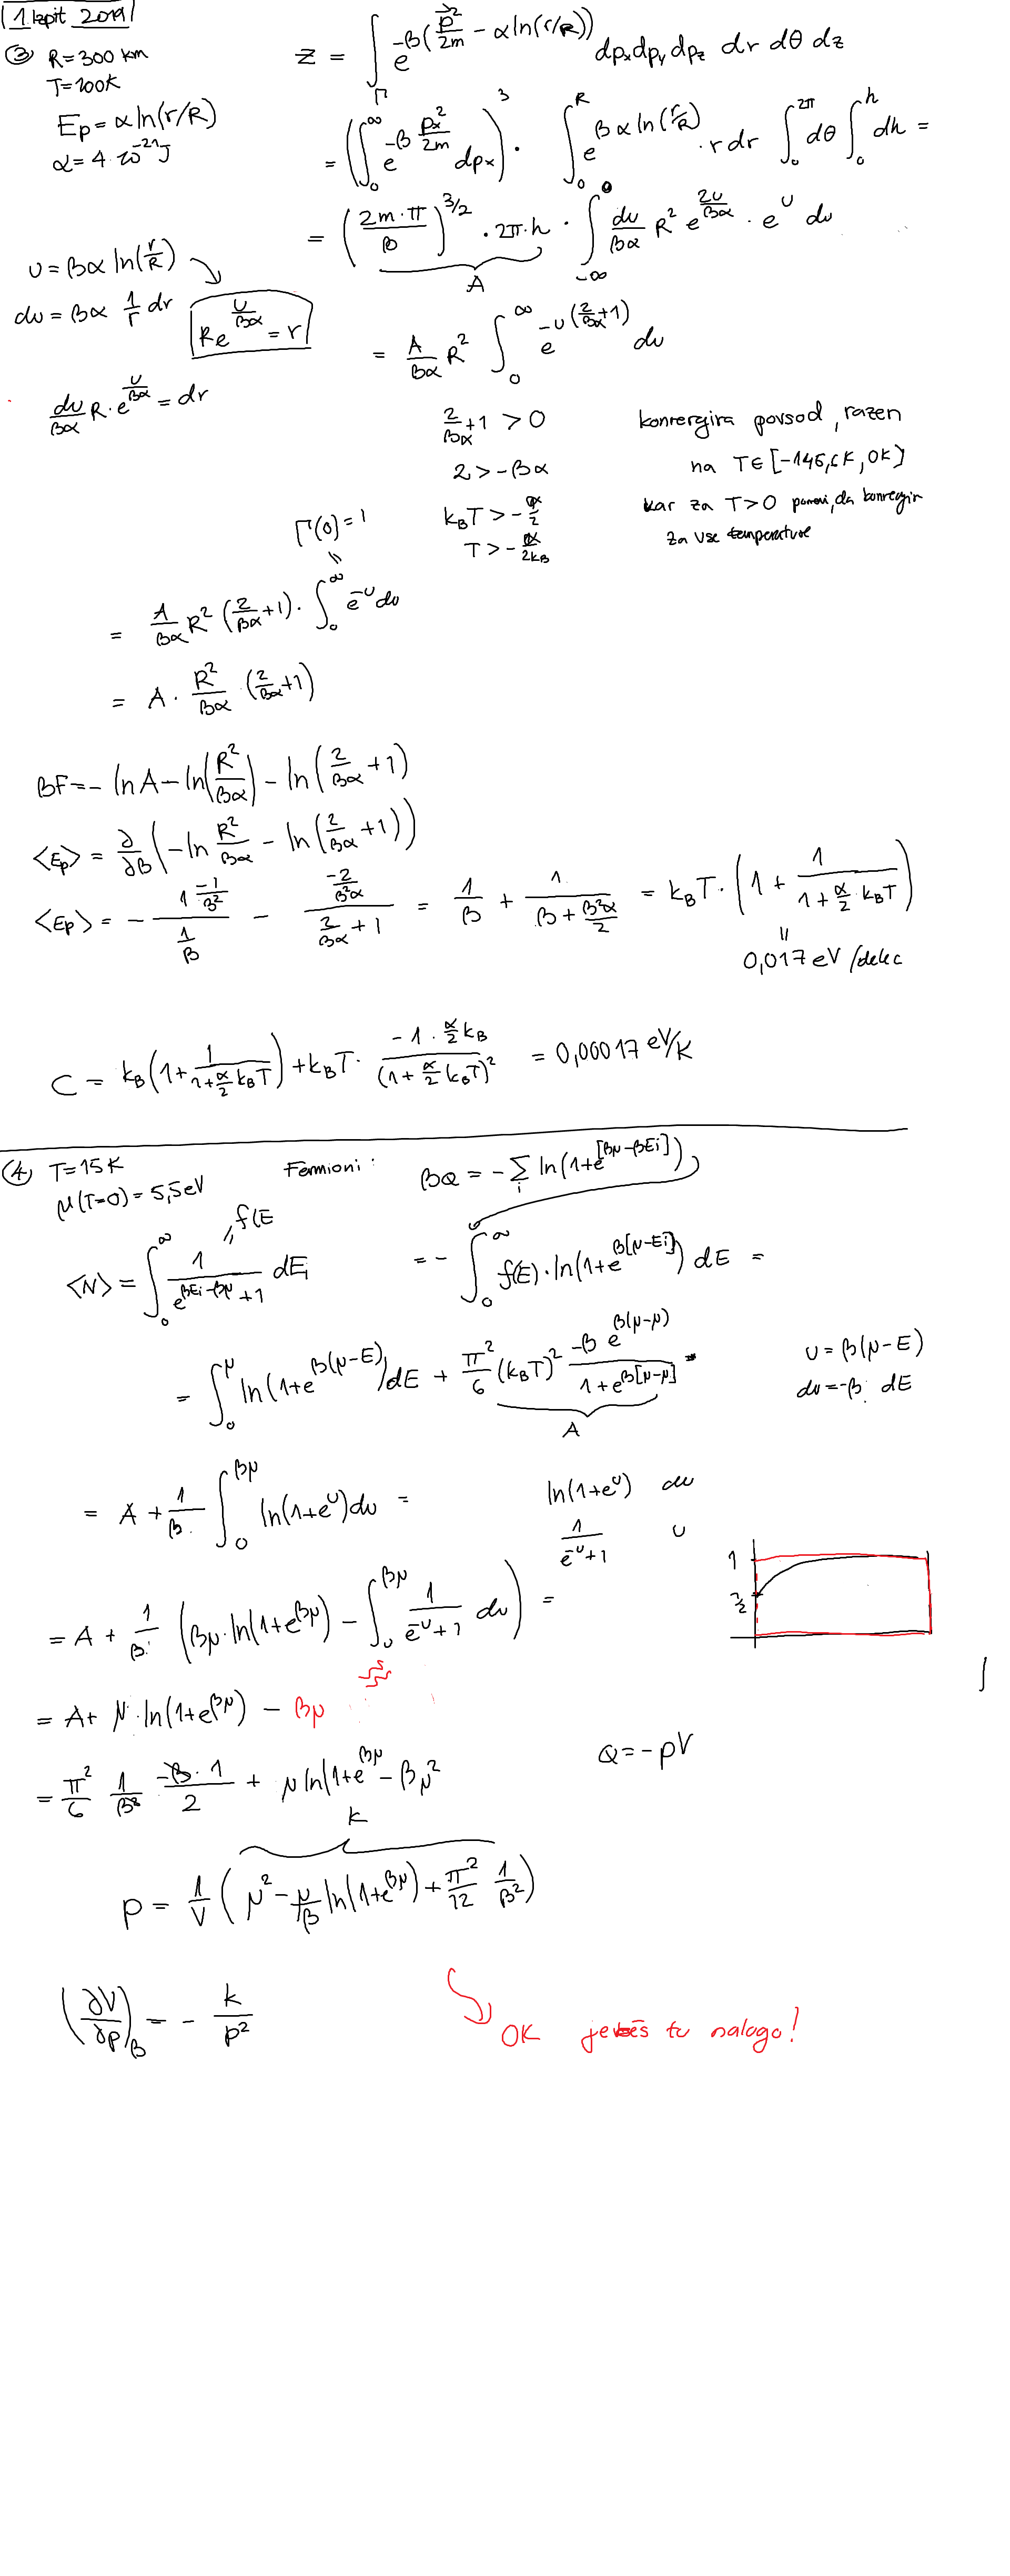 1. Izpit 2019
③ R = 300 km
T = 100K
E_p = α ln(r/R)
α = 4·10^{-21} J
Z = ∫_Γ e^{-β(\vec{p}^2/2m - α ln(r/R))} dp_x dp_y dp_z dr dθ dz
= (∫_0^∞ e^{-β p_x^2/2m} dp_x)^3 · ∫_0^R e^{βα ln(r/R)} · r dr ∫_0^{2π} dθ ∫_0^h dh =
= (2m·π/β)^{3/2} · 2π·h · ∫_{-∞}^0 du/βα R^2 e^{2u/βα} · e^u du
A
u = βα ln(r/R)
du = βα 1/r dr
R e^{u/βα} = r
du/βα R·e^{u/βα} = dr
= A/βα R^2 ∫_0^∞ e^{-u(2/βα + 1)} du
2/βα + 1 > 0
2 > -βα
k_B T > -α/2
T > -α/2k_B
konvergira povsod, razen
na T∈[-145,6K, 0K]
kar za T>0 pomeni, da konvergira
za vse temperature
Γ(0) = 1
= A/βα R^2 (2/βα + 1) · ∫_0^∞ e^{-u} du
= A · R^2/βα · (2/βα + 1)
βF = - ln A - ln(R^2/βα) - ln(2/βα + 1)
<E_p> = ∂/∂β (-ln R^2/βα - ln(2/βα + 1))
<E_p> = - (1 -1/β^2)/(1/β) - (-2/β^2α)/(2/βα + 1) = 1/β + 1/(β + β^2α/2) = k_B T · (1 + 1/(1 + α/2 · k_B T))
=
0,017 eV/delec
C = k_B (1 + 1/(1 + α/2 k_B T)) + k_B T · (-1 · α/2 k_B)/(1 + α/2 (k_B T)^2 = 0,00017 eV/K
④ T = 15K
μ(T=0) = 5,5 eV
Fermioni:
βQ = - Σ_i ln(1 + e^{[βμ - βEi]})
= f(E
<N> = ∫_0^∞ 1/(e^{βEi - βμ} + 1) dE_i
= - ∫_0^∞ f(E) · ln(1 + e^{β[μ - Ei]}) dE =
= ∫_0^μ ln(1 + e^{β(μ-E)}) dE + π^2/6 (k_B T)^2 (-β e^{β(μ-μ)})/(1 + e^{β[μ-μ]}) =
A
u = β(μ-E)
du = -β dE
= A + 1/β ∫_0^{βμ} ln(1 + e^u) du =
ln(1 + e^u) du
1/(e^{-u} + 1) u
= A + 1/β (βμ · ln(1 + e^{βμ}) - ∫_0^{βμ} 1/(e^{-u} + 1) du) =
1
1/2
∫
= A + μ · ln(1 + e^{βμ}) - βμ
= π^2/6 1/β^2 (-β · 1)/2 + μ ln(1 + e^{βμ} - βμ^2
Q = -pV
k
p = 1/V (μ^2 - μ/β ln(1 + e^{βμ}) + π^2/12 1/β^2)
(∂V/∂p)_β = - k/p^2
OK jebeš tu nalogo!